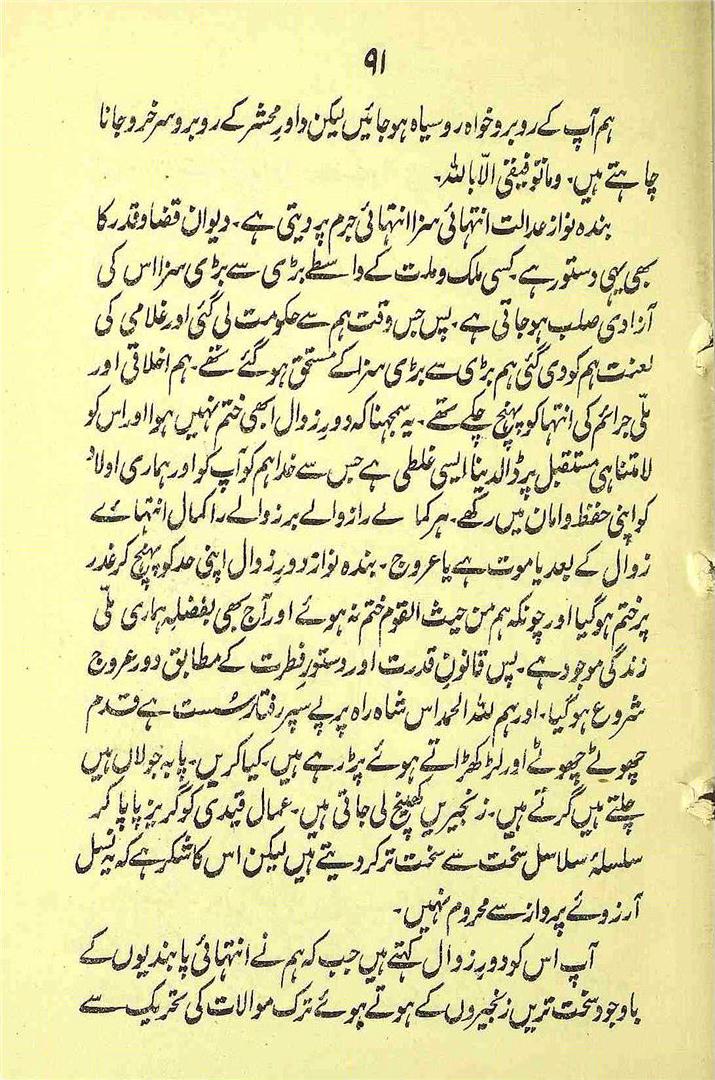 ۹۱
ہم آپ کے روبرو خواہ روسیاہ ہوجائیں لیکن داورِ محشر کے روبرو سرخرو جانا
چاہتے ہیں۔ وما توفیقی الّا باللہ۔
بندہ نواز عدالت انتہائی سزا انتہائی جرم پر دیتی ہے۔ دیوان قضا و قدر کا
بھی یہی دستور ہے۔ کسی ملک و ملت کے واسطے بڑی سے بڑی سزا اس کی
آزادی صلب ہوجاتی ہے۔ پس جس وقت ہم سے حکومت لی گئی اور غلامی کی
لعنت ہم کو دی گئی ہم بڑی سے بڑی سزا کے مستحق ہوگئے تھے۔ ہم اخلاقی اور
ملّی جرائم کی انتہا کو پہنچ چکے تھے۔ یہ سمجھنا کہ دورِ زوال ابھی ختم نہیں ہوا اور اس کو
لامتناہی مستقبل پر ڈالدینا ایسی غلطی ہے جس سے خدا ہم کو آپ کو اور ہماری اولاد
کو اپنی حفظ و امان میں رکھے۔ ہر کمالے را زوالے ہر زوالے را کمال انتہائے
زوال کے بعد یا موت ہے یا عروج۔ بندہ نواز دورِ زوال اپنی حد کو پہنچ کر غدر
پر ختم ہوگیا اور چونکہ ہم من حیث القوم ختم نہ ہوئے اور آج بھی بفضلہ ہماری ملّی
زندگی موجود ہے۔ پس قانونِ قدرت اور دستورِ فطرت کے مطابق دور عروج
شروع ہوگیا۔ اور ہم للہ الحمد اس شاہ راہ پر پے سپر رفتار سُست ہے قدم
چھوٹے چھوٹے اور لڑکھڑاتے ہوئے پڑ رہے ہیں۔ کیا کریں۔ پا بہ جولاں ہیں
چلتے ہیں گرتے ہیں۔ زنجیریں کھینچ لی جاتی ہیں۔ عمال قیدی کو گریز پا پا کر
سلسلۂ سلاسل سخت سے سخت تر کردیتے ہیں لیکن اس کا شکر ہے کہ یہ نسل
آرزوئے پرواز سے محروم نہیں۔
آپ اس کو دورِ زوال کہتے ہیں جب کہ ہم نے انتہائی پابندیوں کے
باوجود سخت تریں زنجیروں کے ہوتے ہوئے ترک موالات کی تحریک سے